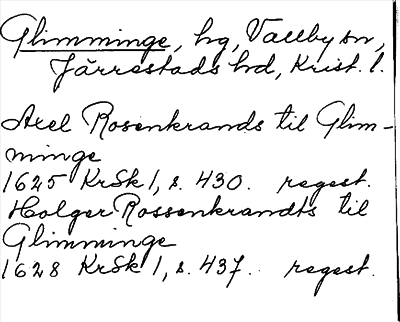 Glimminge, hg, Vallby sn,
Järrestads hd, Krist. l.
Axel Rosenkrands til Glim-
minge
1625 KrSk 1, s. 430. regest.
Holger Rossenkrandts til
Glimminge
1628 KrSk 1, s. 437. regest.